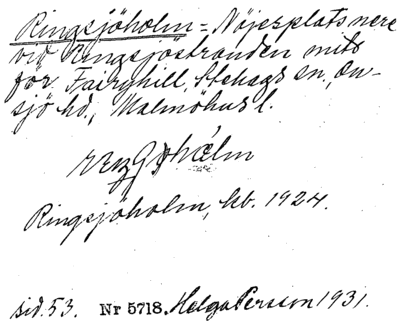 Ringsjöholm = Nöjesplats nere
vid Ringsjöstranden mitt
för Fairyhill, Stehags sn., On-
sjö hd., Malmöhus l.
Ringsjöholm, kb. 1924.
sid. 53. Nr 5718. Helga Persson 1931.